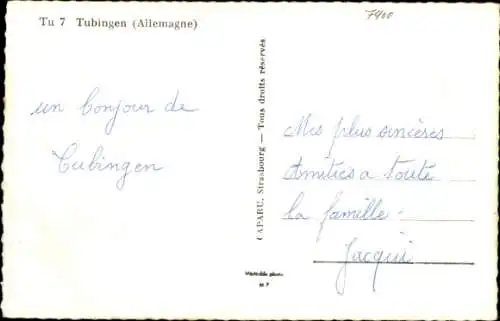 Tu 7 Tubingen (Allemagne)
7400
un bonjour de
Tubingen
CAPARU, Strasbourg — Tous droits réservés
Véritable photo
M P
Mes plus sincères
Amitiés a toute
la famille -
Jacqui